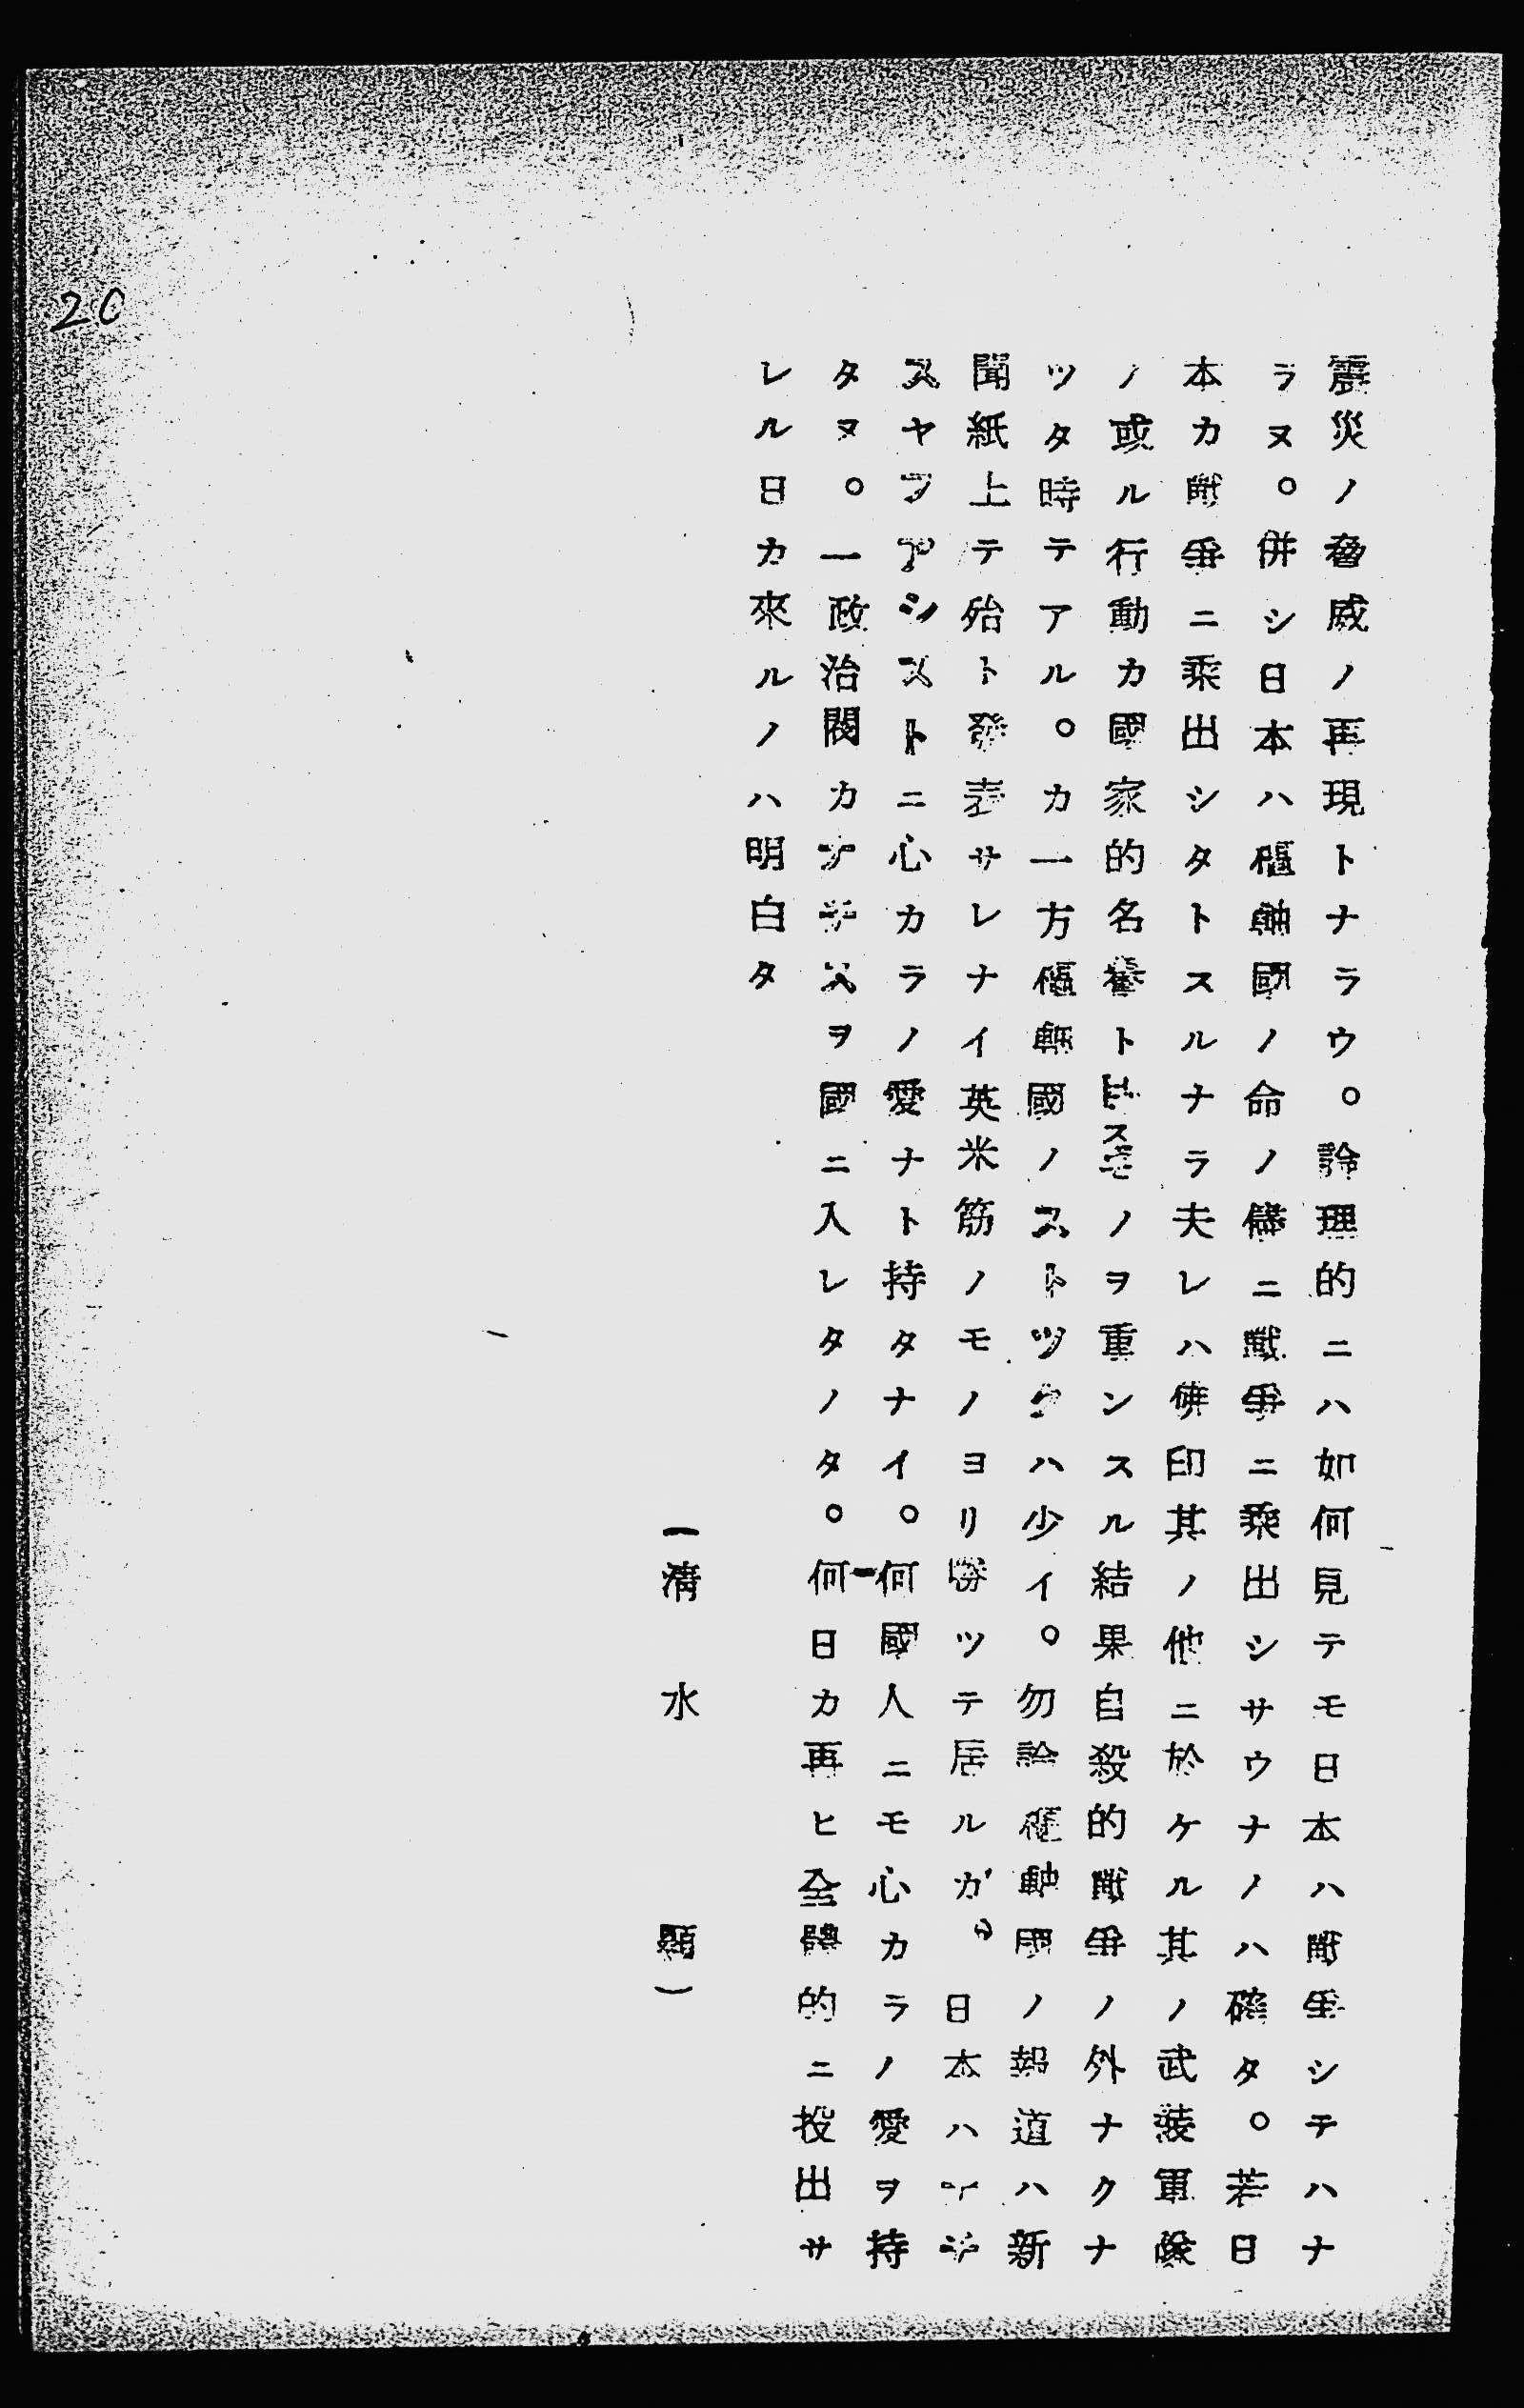 震災ノ脅威ノ再現トナラウ。論理的ニハ如何見テモ日本ハ戰爭シテハナ
ラヌ。併シ日本ハ樞軸國ノ命ノ儘ニ戰爭ニ乘出シサウナノハ確タ。若日
本カ戰爭ニ乘出シタトスルナラ夫レハ佛印其ノ他ニ於ケル其ノ武裝軍隊
ノ或ル行動カ國家的名譽トスノヲ重ンスル結果自殺的戰爭ノ外ナクナ
ツタ時テアル。カ一方樞軸國ノストツクハ少イ。勿論樞軸國ノ報道ハ新
聞紙上テ殆ト發表サレナイ英米筋ノモノヨリ勝ツテ居ルガ、日本ハナシ
スヤフアシストニ心カラノ愛ナト持タナイ。何國人ニモ心カラノ愛ヲ持
タヌ。一政治閥カナチスヲ國ニ入レタノタ。何日カ再ヒ全體的ニ投出サ
レル日カ來ルノハ明白タ
(清水顯)
20